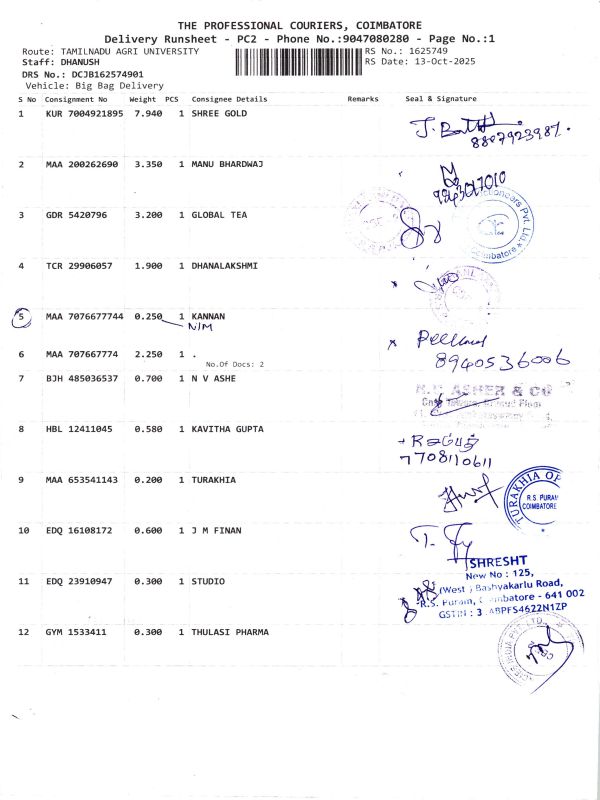 THE PROFESSIONAL COURIERS, COIMBATORE
Delivery Runsheet - PC2 - Phone No.:9047080280 - Page No.:1
Route: TAMILNADU AGRI UNIVERSITY RS No.: 1625749
Staff: DHANUSH RS Date: 13-Oct-2025
DRS No.: DCJB162574901
Vehicle: Big Bag Delivery
S No Consignment No Weight PCS Consignee Details Remarks Seal & Signature
1 KUR 7004921895 7.940 1 SHREE GOLD
2 MAA 200262690 3.350 1 MANU BHARDWAJ
3 GDR 5420796 3.200 1 GLOBAL TEA
Coimbatore
4 TCR 29906057 1.900 1 DHANALAKSHMI
5 MAA 7076677744 0.250 1 KANNAN
N/M
6 MAA 707667774 2.250 1 .
8940536006
No.Of Docs: 2
7 BJH 485036537 0.700 1 N V ASHE
ASHER & CO
8 HBL 12411045 0.580 1 KAVITHA GUPTA
7708110611
9 MAA 653541143 0.200 1 TURAKHIA
TURAKHIA OP
R S PURAM
COIMBATORE
10 EDQ 16108172 0.600 1 J M FINAN
SHRESHT
New No : 125,
11 EDQ 23910947 0.300 1 STUDIO
(West) Bashyakarlu Road,
R.S. Puram, Coimbatore - 641 002
GSTIN : 3 ABPFS4622N1ZP
12 GYM 1533411 0.300 1 THULASI PHARMA